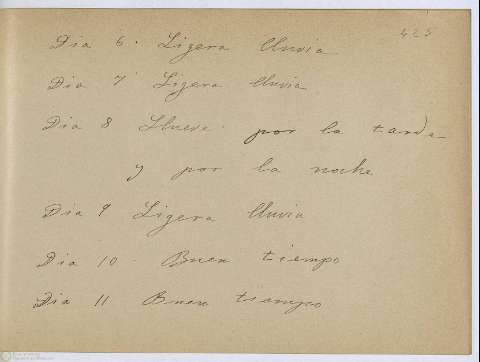 423
Dia 6. Ligera lluvia
Dia 7 Ligera lluvia
Dia 8 Llueve por la tarde
y por la noche
Dia 9 Ligera lluvia
Dia 10. Buen tiempo
Dia 11 Buen tiempo